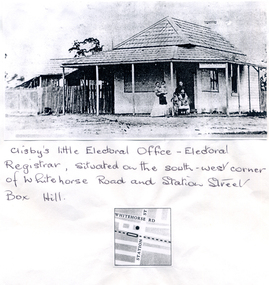 Clisby's little Electoral Office - Electoral
Registrar, situated on the south-west corner
of Whitehorse Road and Station Street
Box Hill.
WHITEHORSE RD
STATION ST